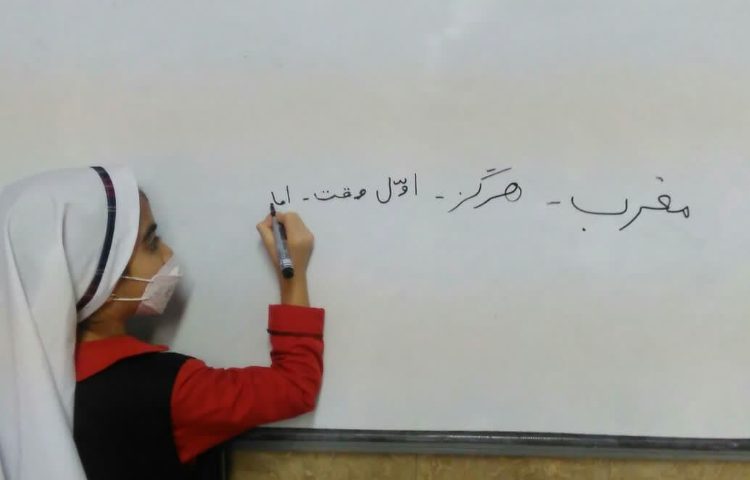 مغرب - هرگز - اوّل وقت - اما